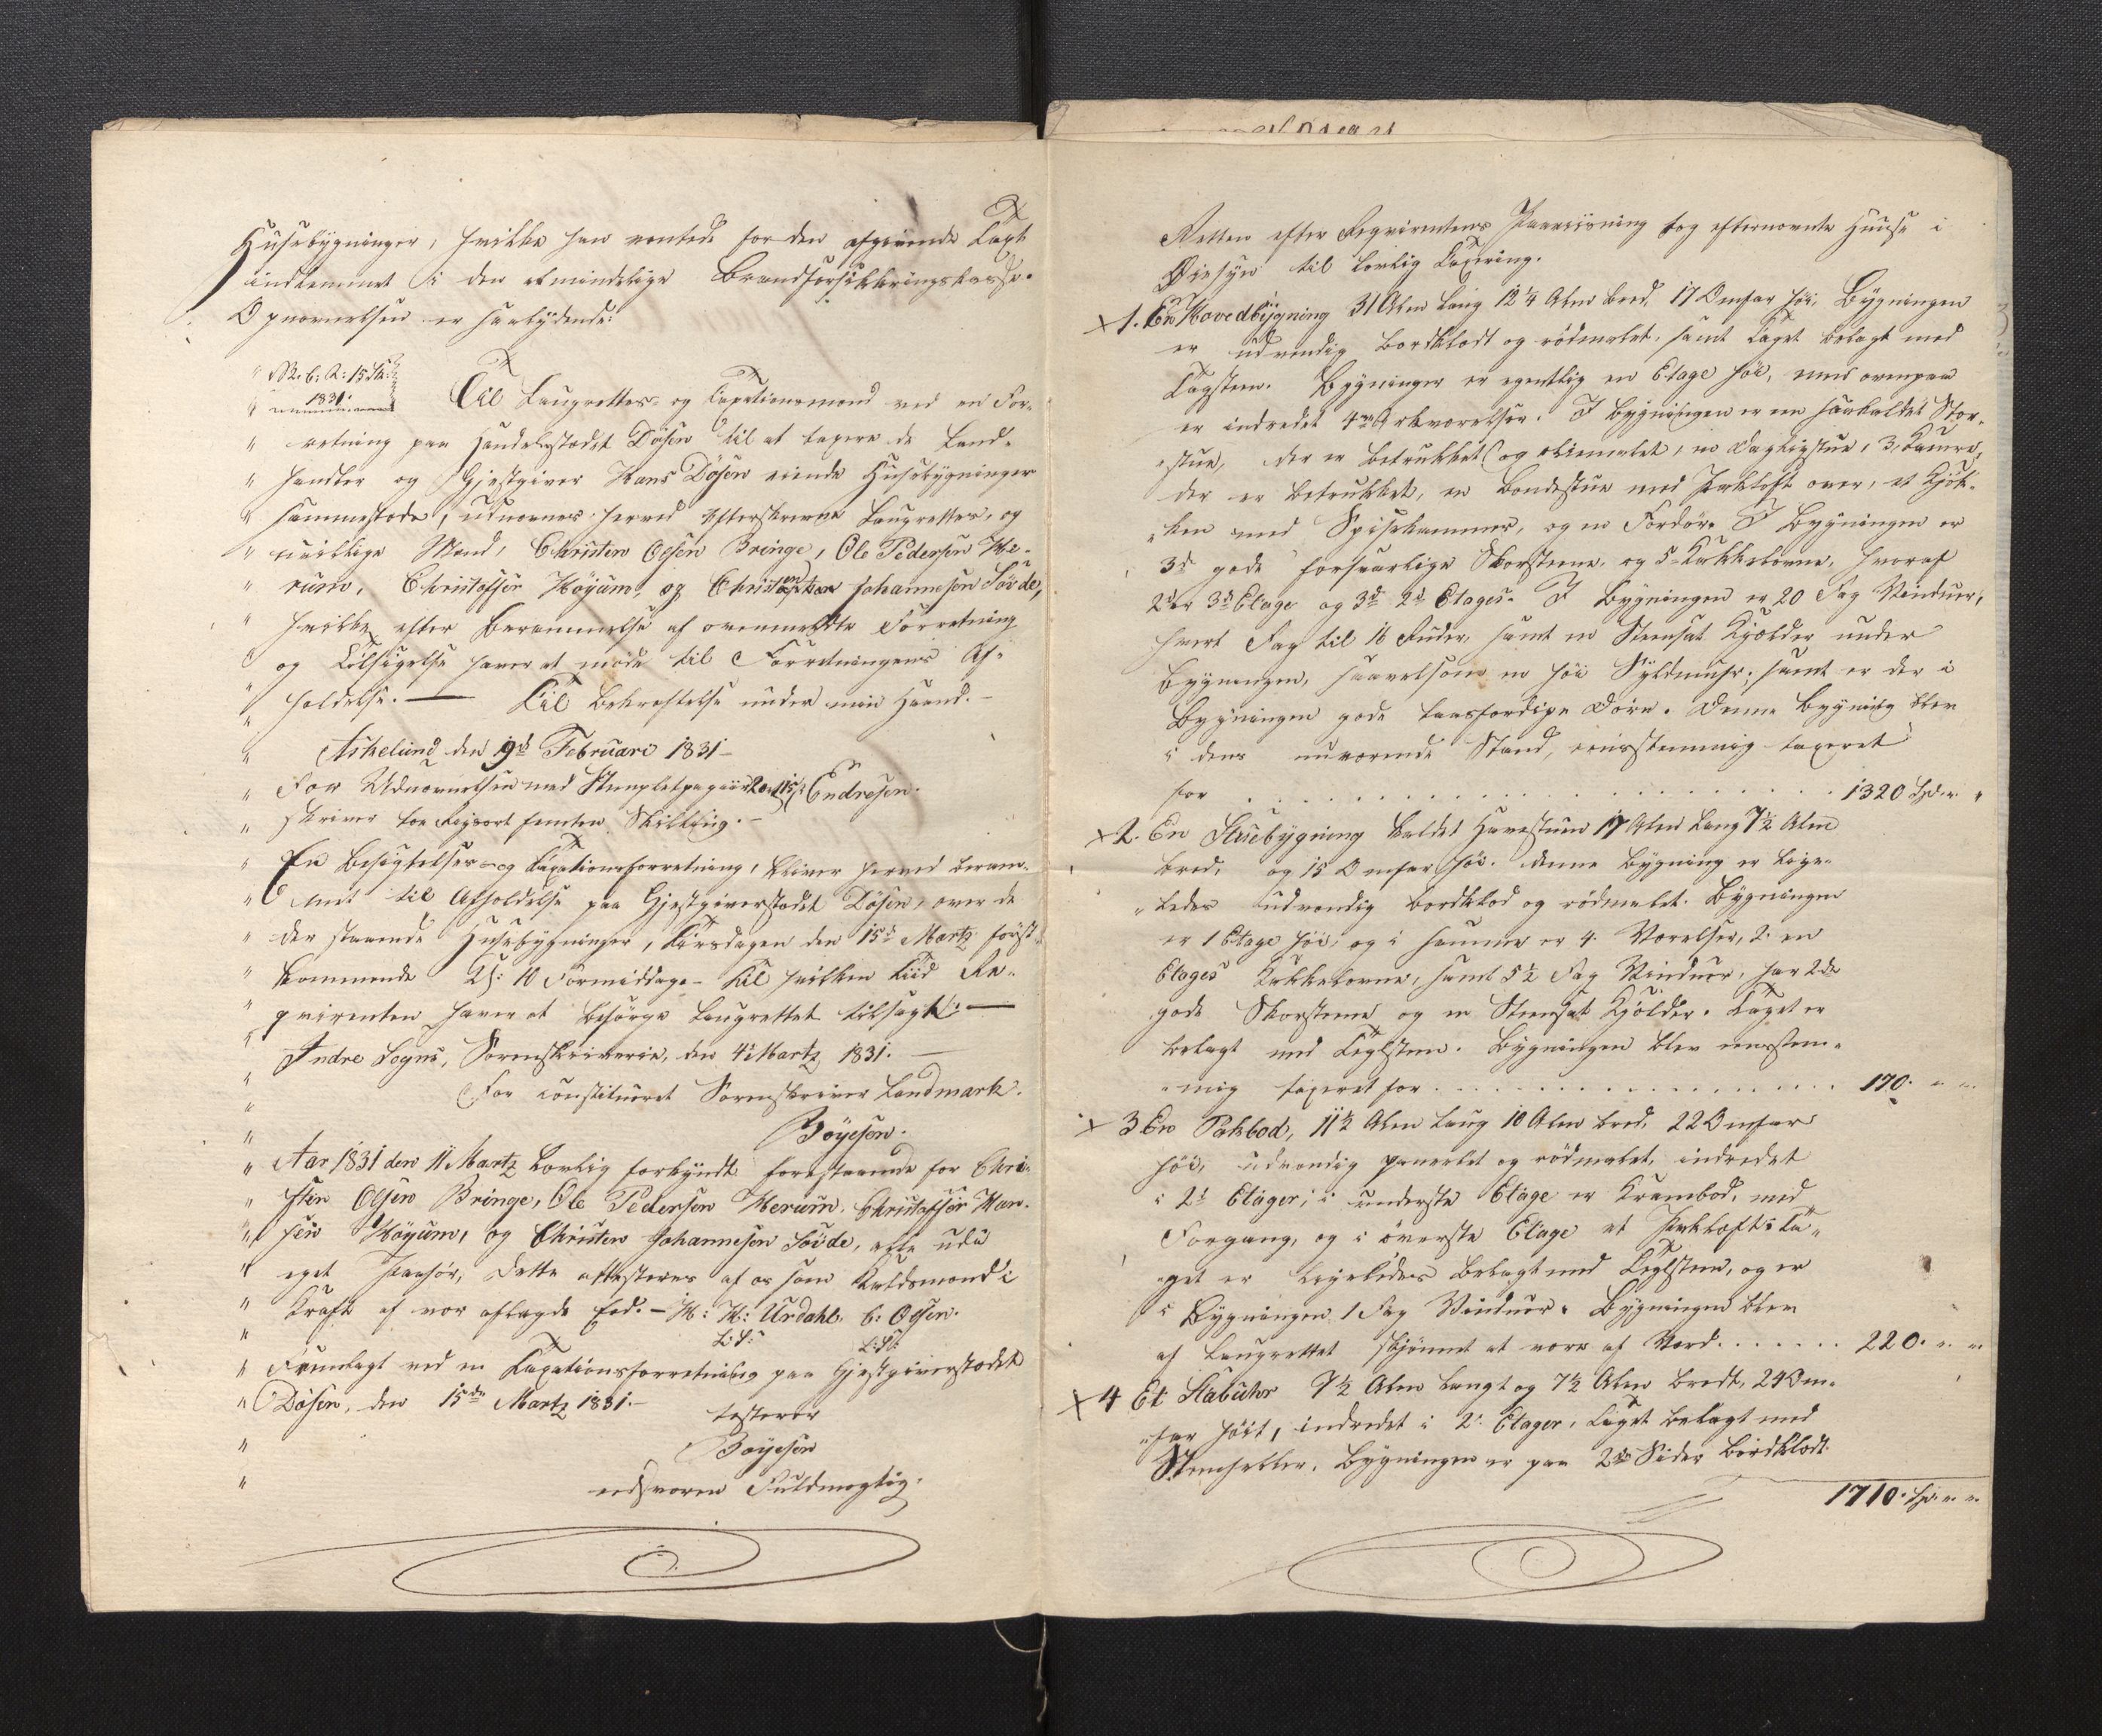 Husebygninger, hvilke han ventede for den afgivende Taxt
indlemmet i den almindelige Brandforsikkringskasse.
Opnævnelsen er saalydende:
" No. C: R: 15 Sk:
" 1831.
Til Laugrettes- og Taxationsmænd ved en For-
" retning paa Handelsstædet Døsen til at taxere de Land-
" handler og Gjestgiver Hans Døsen eiende Husebygninger
" sammestæds, udnævnes herved efterskrevne Laugrettes- og
" uvillige Mænd, Christen Olsen Bringe, Ole Pedersen He-
" rum, Christoffer Høyum, og Christen Johannesen Løvde,
" hvilke efter Berammelse af ovenmeldte Forretning
" og Tilsigelse haver at møde til Forretningens Af-
" holdelse. — Til Bekræftelse under min Haand. –
" Askelund den 9d Februari 1831 –
" For Udnævnelsen med Stemplet papiir Endresen.
" skriver toe Reysort femten Skilling. –
" En Besigtelses- og Taxationsforretning, bliver herved beram-
" met til Afholdelse paa Gjestgiverstædet Døsen, over de
" der staaende Husebygninger, Tirsdagen den 15d Martz først-
" kommende Kl: 10 Formiddag – til hvilken Tiid Re-
" qvirenten haver at besørge Laugrettet tilsagt. —
" Indre Sogns, Sorenskriverie, den 4d Martz 1831. —
" For constitueret Sorenskriver Landmark.
" Bøyesen.
" Aar 1831 den 11 Martz Lovlig forkyndt forestaaende for Chri-
" sten Olsen Bringe, Ole Pedersen Herum, Christoffer Han-
" sen Høyum, og Christen Johannesen Løvde, alle udi
" eget Paahør, dette attesteres af os som Kaldsmænd i
" Kraft af vor aflagde Eed. – H: H: Urdahl. C: Olsen.
" L: S: L: S:
" Fremlagt ved en Taxationsforretning paa Gjestgiverstædet
" Døsen, den 15de Martz 1831. –
testerer
" Bøyesen
" eedsvoren Fuldmægtig.
Retten efter Reqvirentens Paaviisning tog efternævnte Huuse i
Øiesyn til lovlig Taxering.
x 1. En Hovedbygning 31 Alen lang 12 1/4 Alen bred, 17 Omfar høi, Bygningen
er udvendig bordklædt og rødmalet, samt Taget belagt med
Tagsteen. Bygningen er egentlig en Etage høi, men ovenpaa
er indredet 4re Qvistværelser. I Bygningen er en saakaldet Stor-
"stue, der er betrukket og oliemalet, en Dagligstue, 3 Kamre,
der er betrukket, en Bondestue med Pakloft over, et Kjøk-
"ken med Spisekammer, og en Fordør. I Bygningen er
3d gode forsvarlige Skorstene, og 5 Kakkelovne, hvoraf
2 er 3d Etage og 3d 2d Etages. I Bygningen er 20 Fag Vinduer,
hvert Fag til 16 Ruder, samt en Steensat Kjælder under
Bygningen, saavelsom en høi Syldmuur; samt er der i
Bygningen gode laasfærdige Døre. Denne Bygning blev
i dens nuværende Stand, eensstemmig taxeret
for . . . . . . . . . . . . . . . . . . . . 1320 Spd. " "
x 2. En Stuebygning kaldet Havestuen 17 Alen lang 7 1/2 Alen
bred, og 15 Omfar høi. Denne Bygning er lige-
"ledes udvendig bordklæd og rødmalet. Bygningen
er 1 Etage høi, og i samme er 4 Værelser, 2 en
Etages Kakkelovne, samt 5 1/2 Fag Vinduer, har 2de
gode Skorstene og en Steensat Kjølder. Taget er
belagt med Teglsteen. Bygningen blev eensstem-
"mig taxeret for . . . . . . . . . . . . . . . . 170. " "
x 3 En Pakbod, 11 1/2 Alen lang 10 Alen bred, 22 Omfar
høi, udvendig panelet og rødmalet, indredet
i 2d Etager; i underste Etage er Krambod, med
Forgang, og i øverste Etage et Pakloft: Ta-
"get er ligeledes belagt med Teglsteen, og er
i Bygningen 1 Fag Vinduer. Bygningen blev
af Laugrettet skjønnet at være af Værd . . . . . . . 220. " "
x 4 Et Stabuhr 7 1/2 Alen langt og 7 1/2 Alen bredt, 24 Om-
"far høit, indredet i 2 Etager, Taget belagt med
Steenheller. Bygningen er paa 2de Sider bordklædt.
1710. Sp. " "